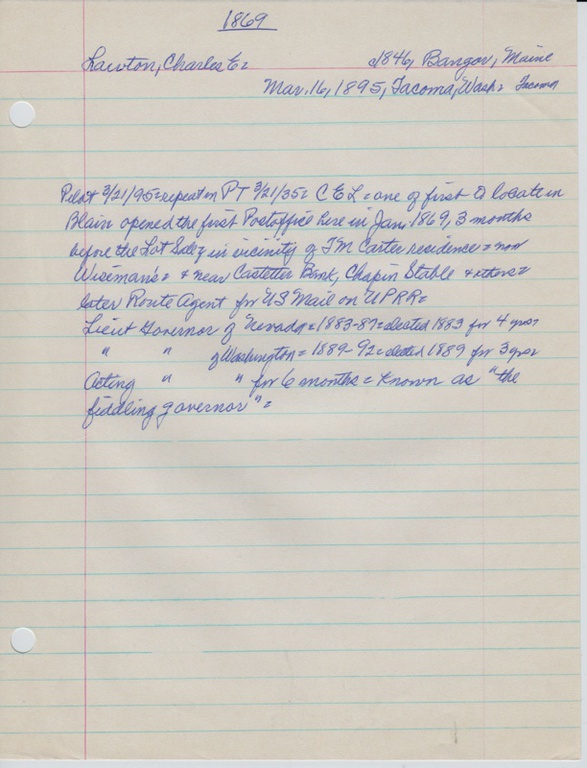 1869
Lawton, Charles E=
c1846, Bangor, Maine
Mar. 16, 1895, Tacoma, Wash= Tacoma
Pilot 3/21/95=repeat in PT 3/21/35= C E L= one of first to locate in
Blair opened the first Postoffice here in Jan. 1869, 3 months
before the Lot Sale & in vicinity of TM Carter residence= now
Wiseman's= & near Castetter Bank, Chapin Stable & others=
later Route Agent for US Mail on UPRR=
Lieut Governor of Nevada=1883-87=elected 1883 for 4 years
" " of Washington= 1889-92=elected 1889 for 3 years
Acting " " for 6 months= known as "the
fiddling governor"=